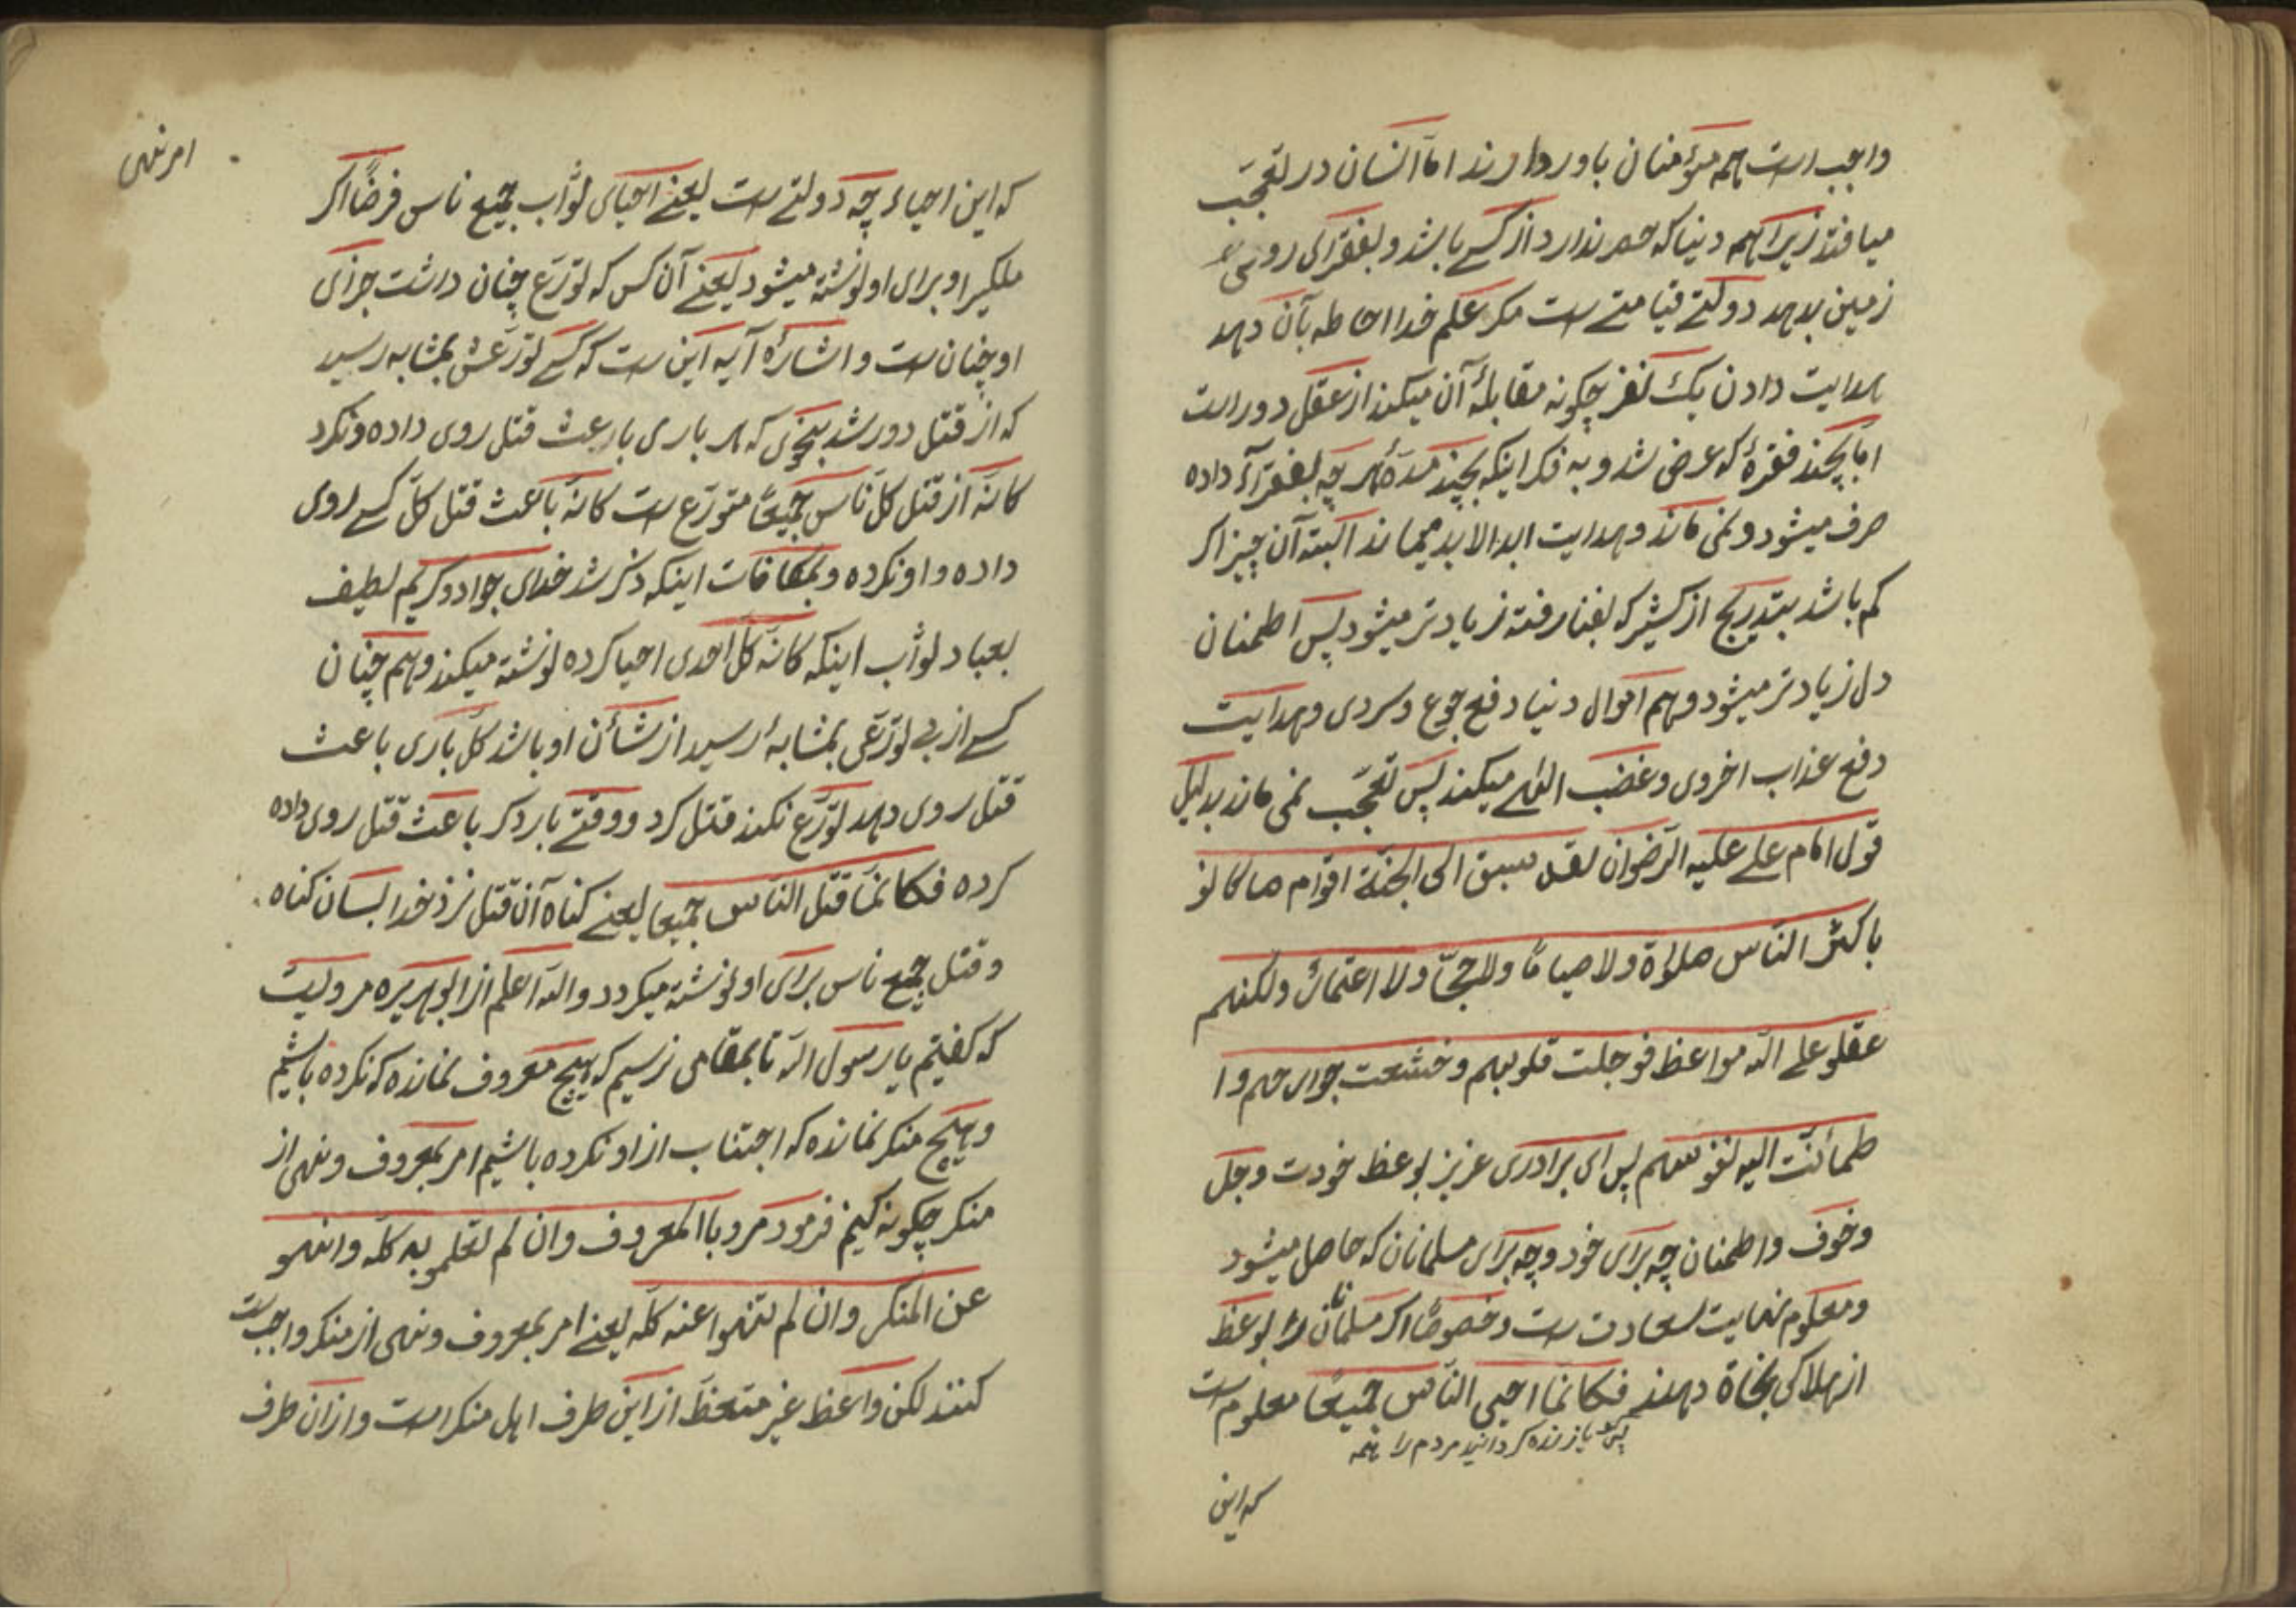 واجب است همه مؤمنان باور دارند اما انسان در تعجّب
میافتد زیرا همه دنیا که حصر ندارد از کسے باشد و بفقرای روی
زمین بدهد دولتے قیامتے ست مکر علم خدا احاطه بآن دهد
هدایت دادن یک نفر چکونه مقابلهٔ آن میکند از عقل دور است
امّا بچند فقرهٔ که عرض شد و به فکر اینکه بچند مدّه هر چه بفقرآء داده
صرف میشود و نمی ماند و هدایت ابد الابد میماند البته آن چیز اکر
کم باشد بتدریج از کثیر که بفنا رفته زیادتر میشود پس اطمنان
دل زیادتر میشود و هم اموال دنیا دفع جوع و سردی و هدایت
دفع عذاب اخروی و غضب الهی میکند پس تعجّب نمی ماند بدلیل
قول امام علے علیه الرّضوان لقد سبق الی الجنّة اقوام ما کانو
باکثر النّاس صلوة ولا صیامًا ولا حجّا ولا اعتمارً ولکنهم
عقلو علے اللّه مواعظ فوجلت قلوبهم وخشعت جوارحهم وا
طمأنّت الیه نفوسهم پس ای برادری عزیز بوعظ خودت وجل
وخوف واطمنان چه برای خود و چه برای مسلمانان که حاصل میشود
و معلوم نهایت سعادت ست وخصوصًا اکر مسلمانان را بوعظ
از هلاکی نجاة دهند فکانما احیی النّاس جمیعًا معلوم ست
پس کویا زنده کردانید مردم را همه
که این
امر نهی
که این احیاء چه دولتے ست یعنے احیای ثواب جمیع ناس فرضًا اکر
ملکیرا و برای او نوشته میشود یعنے آن کس که تورّع چنان داشت جزای
او چنان ست و اشارهٔ آیه این ست که کسے تورّعش بمثابه رسید
که از قتل دور شد بنحوی که هر باری باعث قتل روی داده ونکرد
کانّه از قتل کلّ ناس جمیعًا متورّع ست کانّه باعث قتل کلّ کسے روی
داده و او نکرده و بمکافات اینکه ذکر شد خدای جواد و کریم لطیف
بعباد ثواب اینکه کانّه کل احدی احیا کرده نوشته میکند و هم چنان
کسے از بے تورّعی بمثابهٔ رسید از شأن او باشد کلّ باری باعث
قتل روی دهد تورّع نکند قتل کرد و وقتے بار دکر باعث قتل روی داده
کرده فکانّما قتل النّاس جمیعا یعنے کناه آن قتل نزد خدا بسان کناه
و قتل جمیع ناس برای او نوشته میکردد و اللّه اعلم از ابو هریره مرویست
که کفتیم یا رسول اللّه تا بمقامی نرسیم که هیچ معروف نمانده که نکرده باشیم
و هیچ منکر نمانده که اجتناب از او نکرده باشیم امر بمعروف و نهی از
منکر چکونه کنیم فرمود مروا بالمعروف وان لم تعلمو به کلّه وانهو
عن المنکر وان لم تنتهوا عنه کلّه یعنے امر بمعروف و نهی از منکر واجب ست
کنند لکن واعظ غیر متعظ از این طرف اهل منکر است و از ان طرف